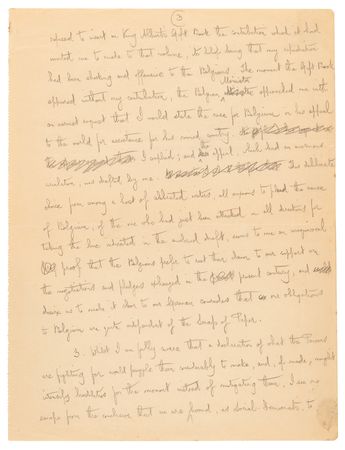 3
refused to insert in King Albert's Gift Book the contribution which it had
invited me to make to that volume,
had been shocking and offensive to the Belgians. The moment the Gift Book
appeared without my contribution, the Belgian Minister approached me with
an earnest request that I would state the case for Belgium in his appeal
to the world for assistance for his ruined country.
I complied; and the appeal, which had an enormous
circulation, was drafted by me. The deliberate
choice from among a host of talented writers, all anxious to plead the cause
of Belgium, of the one who had just been attacked in all directors for
taking the line indicated in the enclosed draft, seems to me an unequivocal
proof that the Belgians prefer to
the negotiations and pledges exchanged in the present century, and
desire us to make it clear to our comrades that our obligations
to Belgium are quite independent of the Scrap of Paper.
3. Whilst I am fully aware that a declaration of what the Powers
are fighting for would puzzle them considerably to make, and, if made, might
intensify hostilities for the moment instead of mitigating them, I see no
escape from the conclusion that we are bound, as Social-Democrats, to